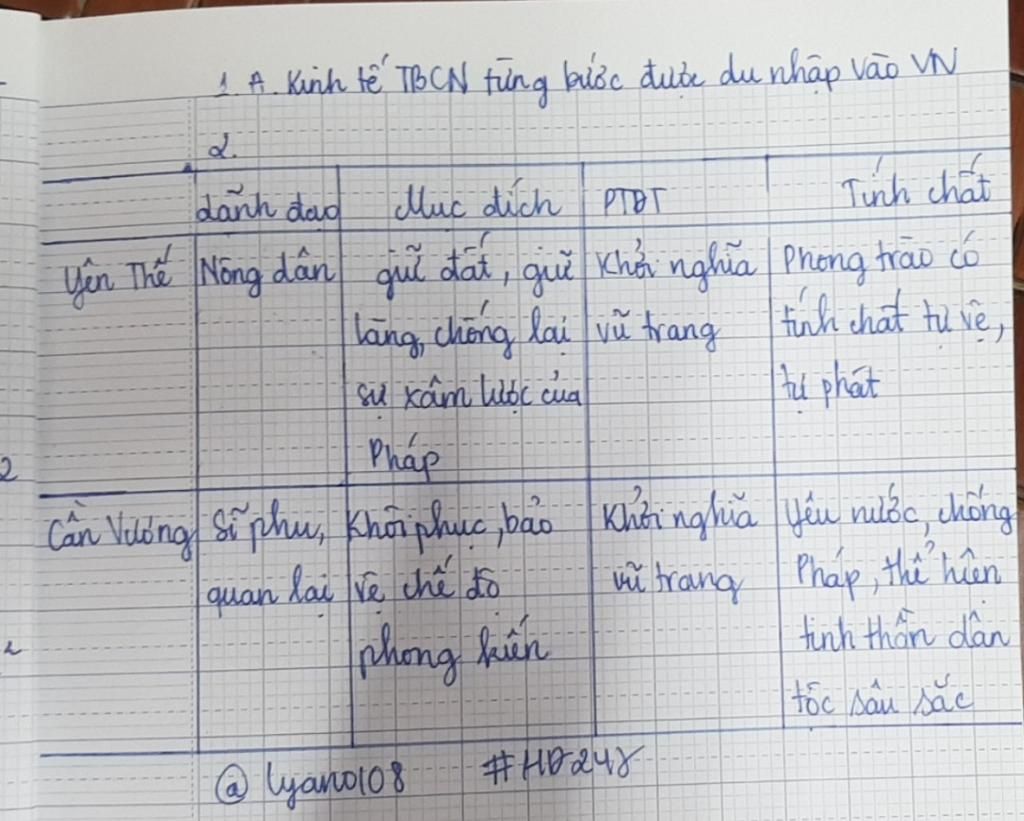 1. A. Kinh tế TBCN từng bước được du nhập vào VN
2.
Lãnh đạo Mục đích PTĐT Tính chất
Yên Thế Nông dân giữ đất, giữ Khởi nghĩa Phong trào có
làng, chống lại vũ trang tính chất tự vệ,
sự xâm lược của tự phát
Pháp
Cần Vương Sĩ phu, Khôi phục, bảo Khởi nghĩa Yêu nước, chống
quan lại vệ chế độ vũ trang Pháp, thể hiện
phong kiến tinh thần dân
tộc sâu sắc
@lyano108 #HĐ247